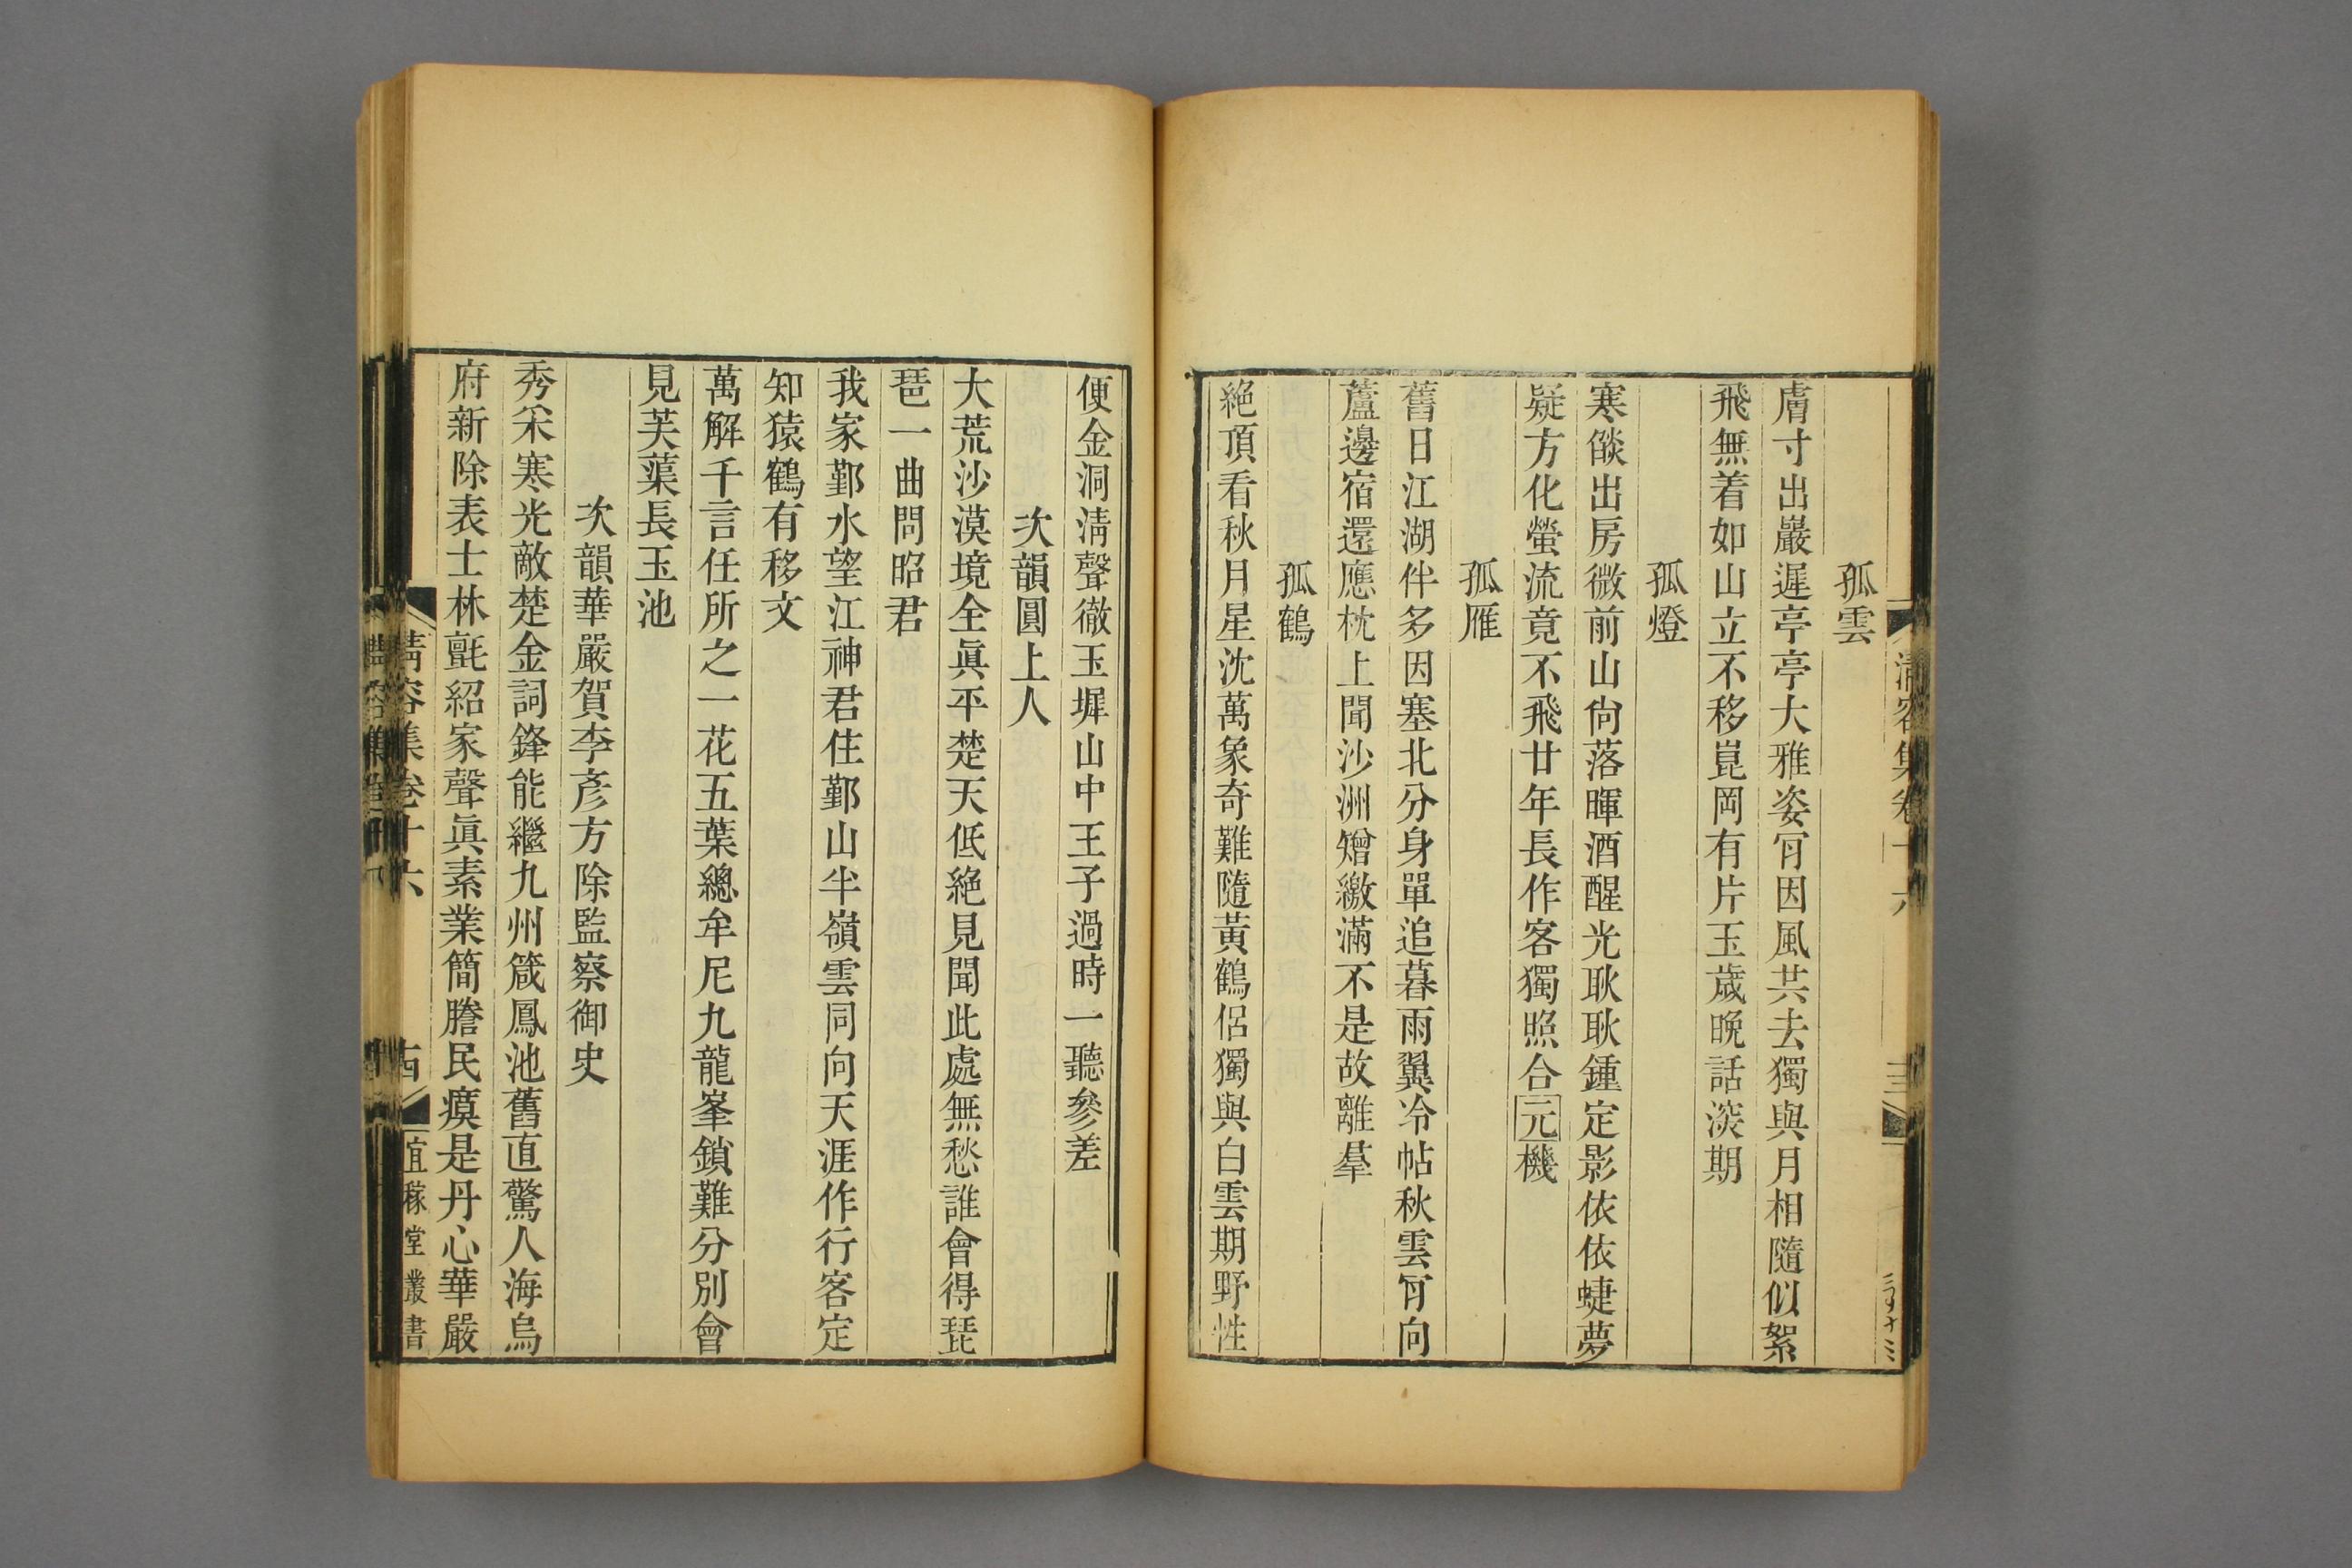 孤雲
膚寸出巖遲亭亭大雅姿宵因風共去獨與月相隨似絮
飛無着如山立不移崑岡有片玉歲晚話深期
孤燈
寒燄出房微前山尙落暉酒醒光耿耿鍾定影依依蜨夢
疑方化螢流竟不飛廿年長作客獨照合元機
孤雁
舊日江湖伴多因塞北分身單追暮雨翼冷帖秋雲宵向
蘆邊宿還應枕上聞沙洲矰繳滿不是故離羣
孤鶴
絶頂看秋月星沈萬象奇難隨黃鶴侶獨與白雲期野性
便金洞淸聲徹玉墀山中王子過時一聽參差
次韻圓上人
大荒沙漠境全眞平楚天低絶見聞此處無愁誰會得琵
琶一曲問昭君
我家鄞水望江神君住鄞山半嶺雲同向天涯作行客定
知猿鶴有移文
萬解千言任所之一花五葉總牟尼九龍峯鎖難分別會
見芙蕖長玉池
次韻華嚴賀李彥方除監察御史
秀采寒光敵楚金詞鋒能繼九州箴鳳池舊直驚人海烏
府新除表士林氈紹家聲眞素業簡謄民瘼是丹心華嚴
清容集卷十六
宜稼堂叢書